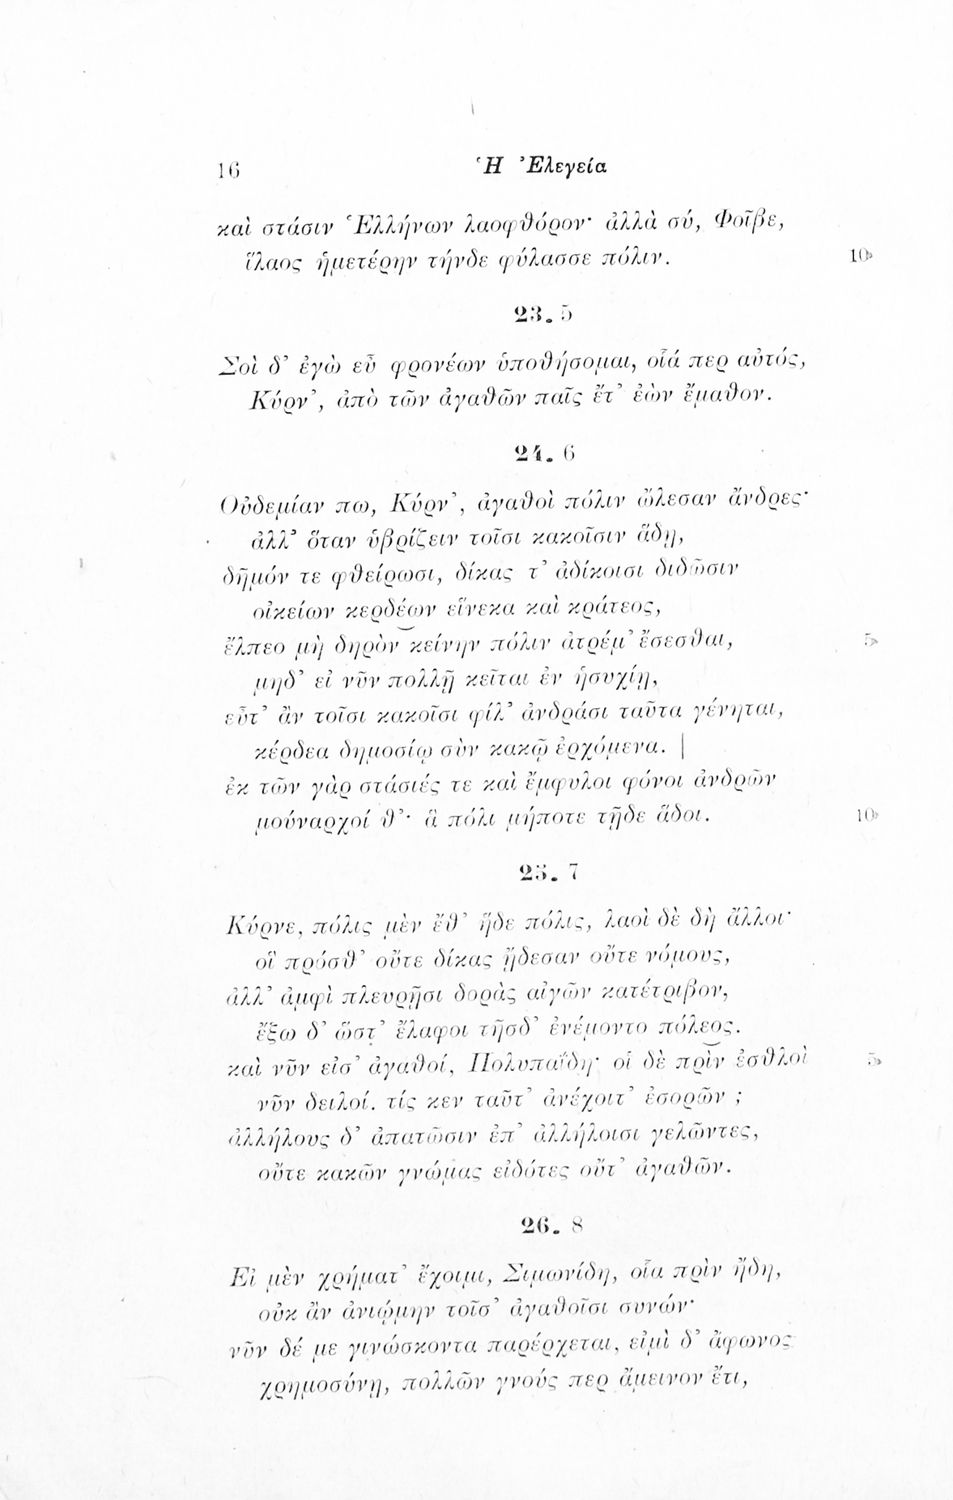 16 Ἡ Ἐλεγεία
καὶ στάσιν Ἑλλήνων λαοφθόρον· ἀλλὰ σύ, Φοῖβε,
ἵλαος ἡμετέρην τήνδε φύλασσε πόλιν. 10
23. 5
Σοὶ δ' ἐγὼ εὖ φρονέων ὑποθήσομαι, οἷά περ αὐτός,
Κύρν', ἀπὸ τῶν ἀγαθῶν παῖς ἔτ' ἐὼν ἔμαθον.
24. 6
Οὐδεμίαν πω, Κύρν', ἀγαθοὶ πόλιν ὤλεσαν ἄνδρες·
ἀλλ' ὅταν ὑβρίζειν τοῖσι κακοῖσιν ἅδῃ,
δῆμόν τε φθείρωσι, δίκας τ' ἀδίκοισι διδῶσιν
οἰκείων κερδέων εἵνεκα καὶ κράτεος,
ἔλπεο μὴ δηρὸν κείνην πόλιν ἀτρέμ' ἔσεσθαι, 5
μηδ' εἰ νῦν πολλῇ κεῖται ἐν ἡσυχίῃ,
εὖτ' ἂν τοῖσι κακοῖσι φίλ' ἀνδράσι ταῦτα γένηται,
κέρδεα δημοσίῳ σὺν κακῷ ἐρχόμενα. |
ἐκ τῶν γὰρ στάσιές τε καὶ ἔμφυλοι φόνοι ἀνδρῶν
μούναρχοί θ'· ἃ πόλι μήποτε τῇδε ἅδοι. 10
25. 7
Κύρνε, πόλις μὲν ἔθ' ἥδε πόλις, λαοὶ δὲ δὴ ἄλλοι·
οἳ πρόσθ' οὔτε δίκας ᾔδεσαν οὔτε νόμους,
ἀλλ' ἀμφὶ πλευρῇσι δορὰς αἰγῶν κατέτριβον,
ἔξω δ' ὥστ' ἔλαφοι τῆσδ' ἐνέμοντο πόλεος.
καὶ νῦν εἰσ' ἀγαθοί, Πολυπαΐδη· οἱ δὲ πρὶν ἐσθλοὶ 5
νῦν δειλοί. τίς κεν ταῦτ' ἀνέχοιτ' ἐσορῶν ;
ἀλλήλους δ' ἀπατῶσιν ἐπ' ἀλλήλοισι γελῶντες,
οὔτε κακῶν γνώμας εἰδότες οὔτ' ἀγαθῶν.
26. 8
Εἰ μὲν χρήματ' ἔχοιμι, Σιμωνίδη, οἷα πρὶν ἤδη,
οὐκ ἂν ἀνιῴμην τοῖσ' ἀγαθοῖσι συνών·
νῦν δέ με γινώσκοντα παρέρχεται, εἰμὶ δ' ἄφωνος
χρημοσύνῃ, πολλῶν γνούς περ ἄμεινον ἔτι,